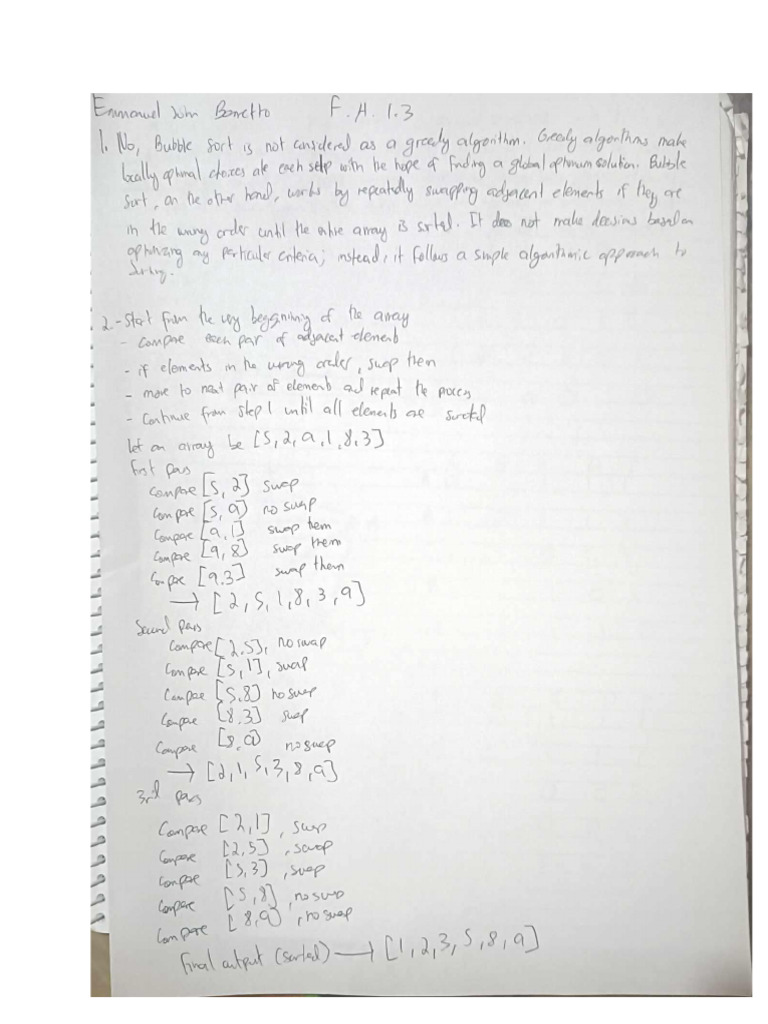 Emmanuel John Barretto F.A. 1.3
1. No, Bubble sort is not considered as a greedy algorithm. Greedy algorithms make
locally optimal choices at each step with the hope of finding a global optimum solution. Bubble
sort, on the other hand, works by repeatedly swapping adjacent elements if they are
in the wrong order until the entire array is sorted. It does not make decisions based on
optimizing any particular criteria; instead, it follows a simple algorithmic approach to
sorting.
2. - Start from the very beginning of the array
- compare each pair of adjacent element
- if elements in the wrong order, swap them
- move to next pair of elements and repeat the process
- Continue from step 1 until all elements are sorted
let an array be [5, 2, 9, 1, 8, 3]
first pass
compare [5, 2] swap
compare [5, 9) no swap
compare [9, 1] swap them
compare [9, 8) swap them
compare [9.3] swap them
→ [2, 5, 1, 8, 3, 9]
Second pass
compare [2.5], no swap
compare [5, 1], swap
compare [5.8] no swap
compare [8.3] swap
compare [8, 9) no swap
→ [2, 1, 5, 3, 8, 9]
3rd pass
Compare [2, 1] , swap
compare [2, 5] , swap
compare [5, 3] , swap
compare [5, 8] , no swap
Compare [8, 9) , no swap
final output (sorted) → [1, 2, 3, 5, 8, 9]